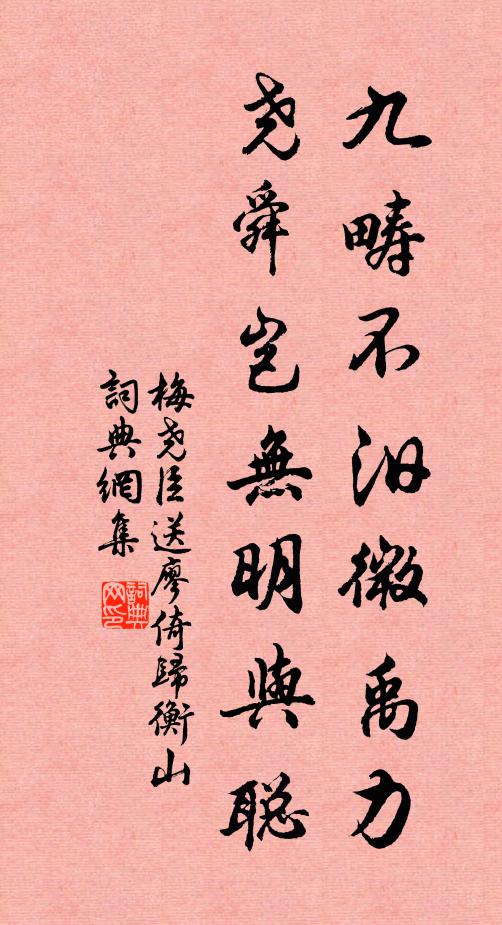 九疇不汩微禹力
堯舜豈無明與聡
梅堯臣送廖倚歸衡山
詞典網集
詞典网印